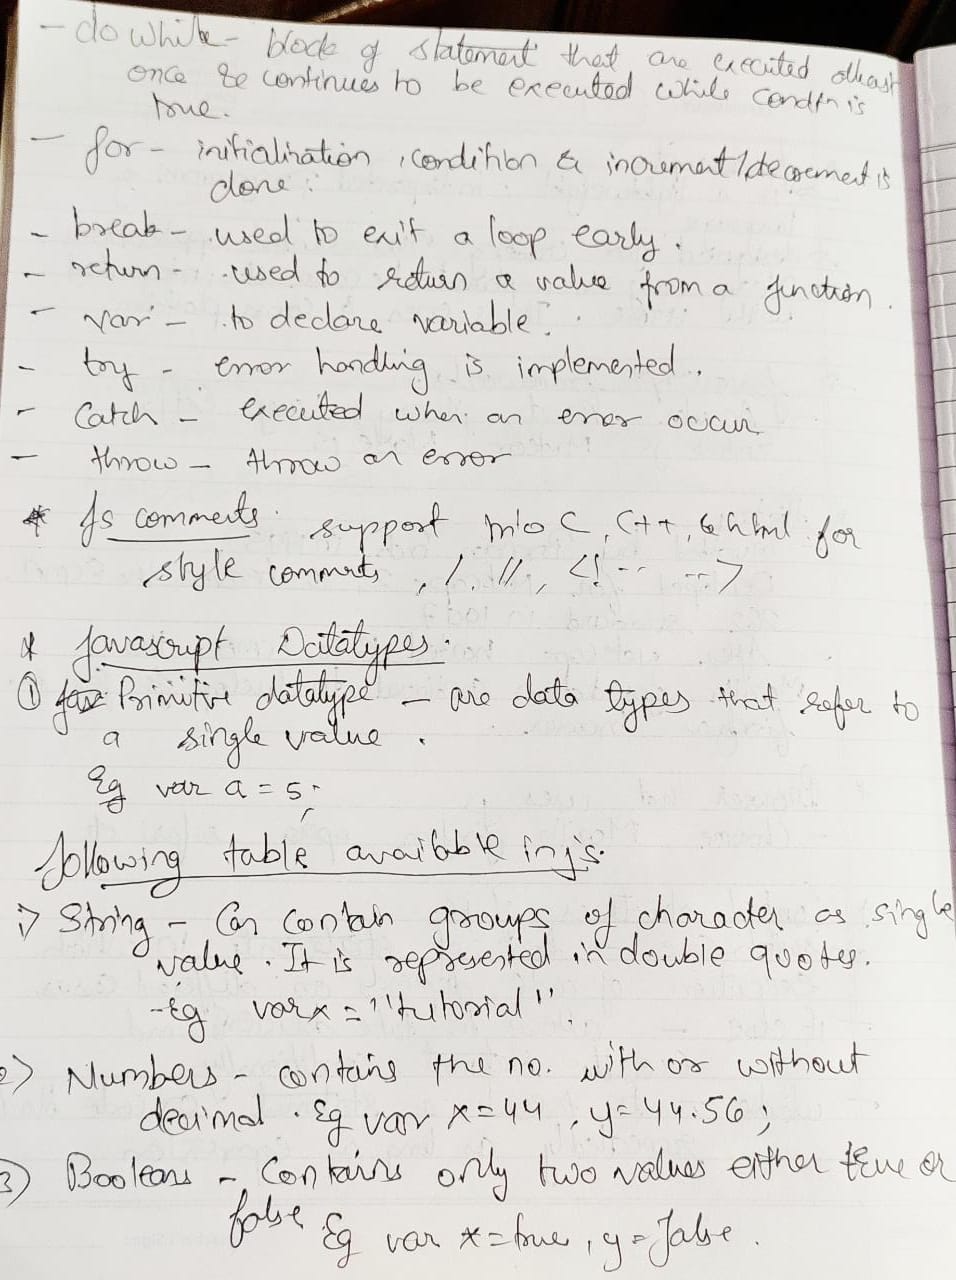 - do while - block of statement that are executed atleast
once & continues to be executed while condtn is
true.
- for - initialization, condition & increment/decrement is
done.
- break - used to exit a loop early.
- return - used to return a value from a function.
- var - to declare variable.
- try - error handling is implemented.
- Catch - executed when an error occur
- throw - throw an error
* Js comments. support C, C++, & html for
style comments, /, //, <! -- -->
* Javascript Datatypes.
① Primitive datatype - are data types that refer to
a single value.
Eg var a = 5;
following table available in js.
1) String - Can contain groups of character as single
value. It is represented in double quotes.
- Eg var x = "tutorial".
2) Numbers - contains the no. with or without
decimal. Eg var x=44, y=44.56;
3) Booleans - Contains only two values either true or
false Eg var x=true, y=false.